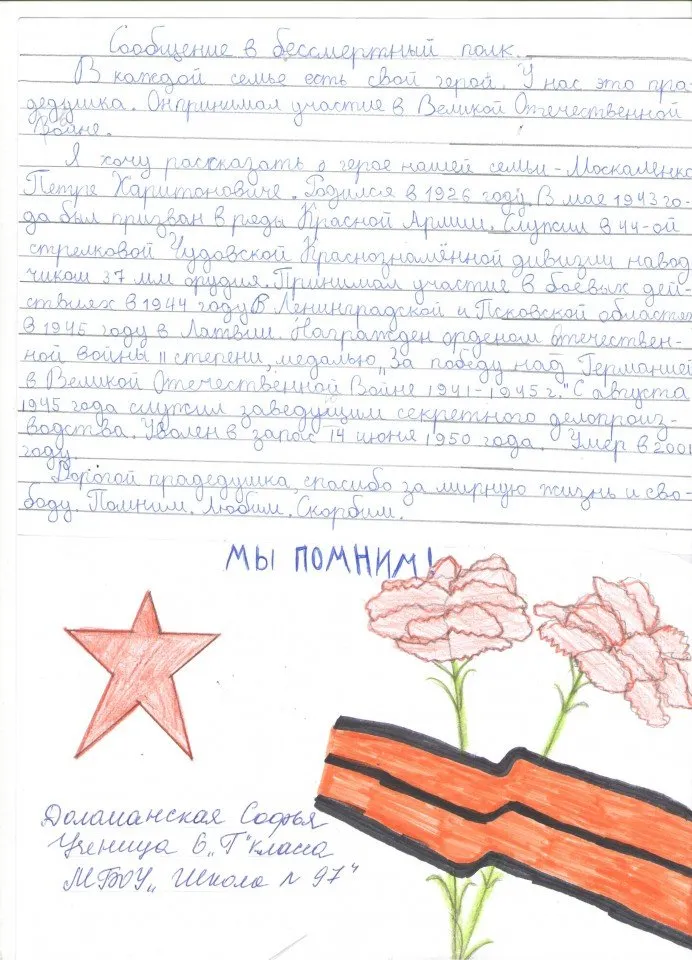 Сообщение в бессмертный полк.
В каждой семье есть свой герой. У нас это пра-
дедушка. Он принимал участие в Великой Отечественной
Войне.
Я хочу рассказать о герое нашей семьи - Москаленко
Петре Харитоновиче. Родился в 1926 году. В мае 1943 го-
да был призван в ряды Красной Армии. Служил в 44-ой
стрелковой Чудовской Краснознамённой дивизии навод
чиком 37 мм орудия. Принимал участие в боевых дей-
ствиях в 1944 году в Ленинградской и Псковской областях
в 1945 году в Латвии. Награжден орденом отечествен-
ной войны II степени, медалью „За победу над Германией
в Великой Отечественной Войне 1941-1945 г." С августа
1945 года служил заведущим секретного делопроиз-
водства. Уволен в запас 14 июня 1950 года. Умер в 2001
году.
Дорогой прадедушка, спасибо за мирную жизнь и сво-
боду. Помним. Любим. Скорбим.
МЫ ПОМНИМ!
Доламанская Софья
Ученица 6 „Г" класса
МБОУ „Школа № 97"